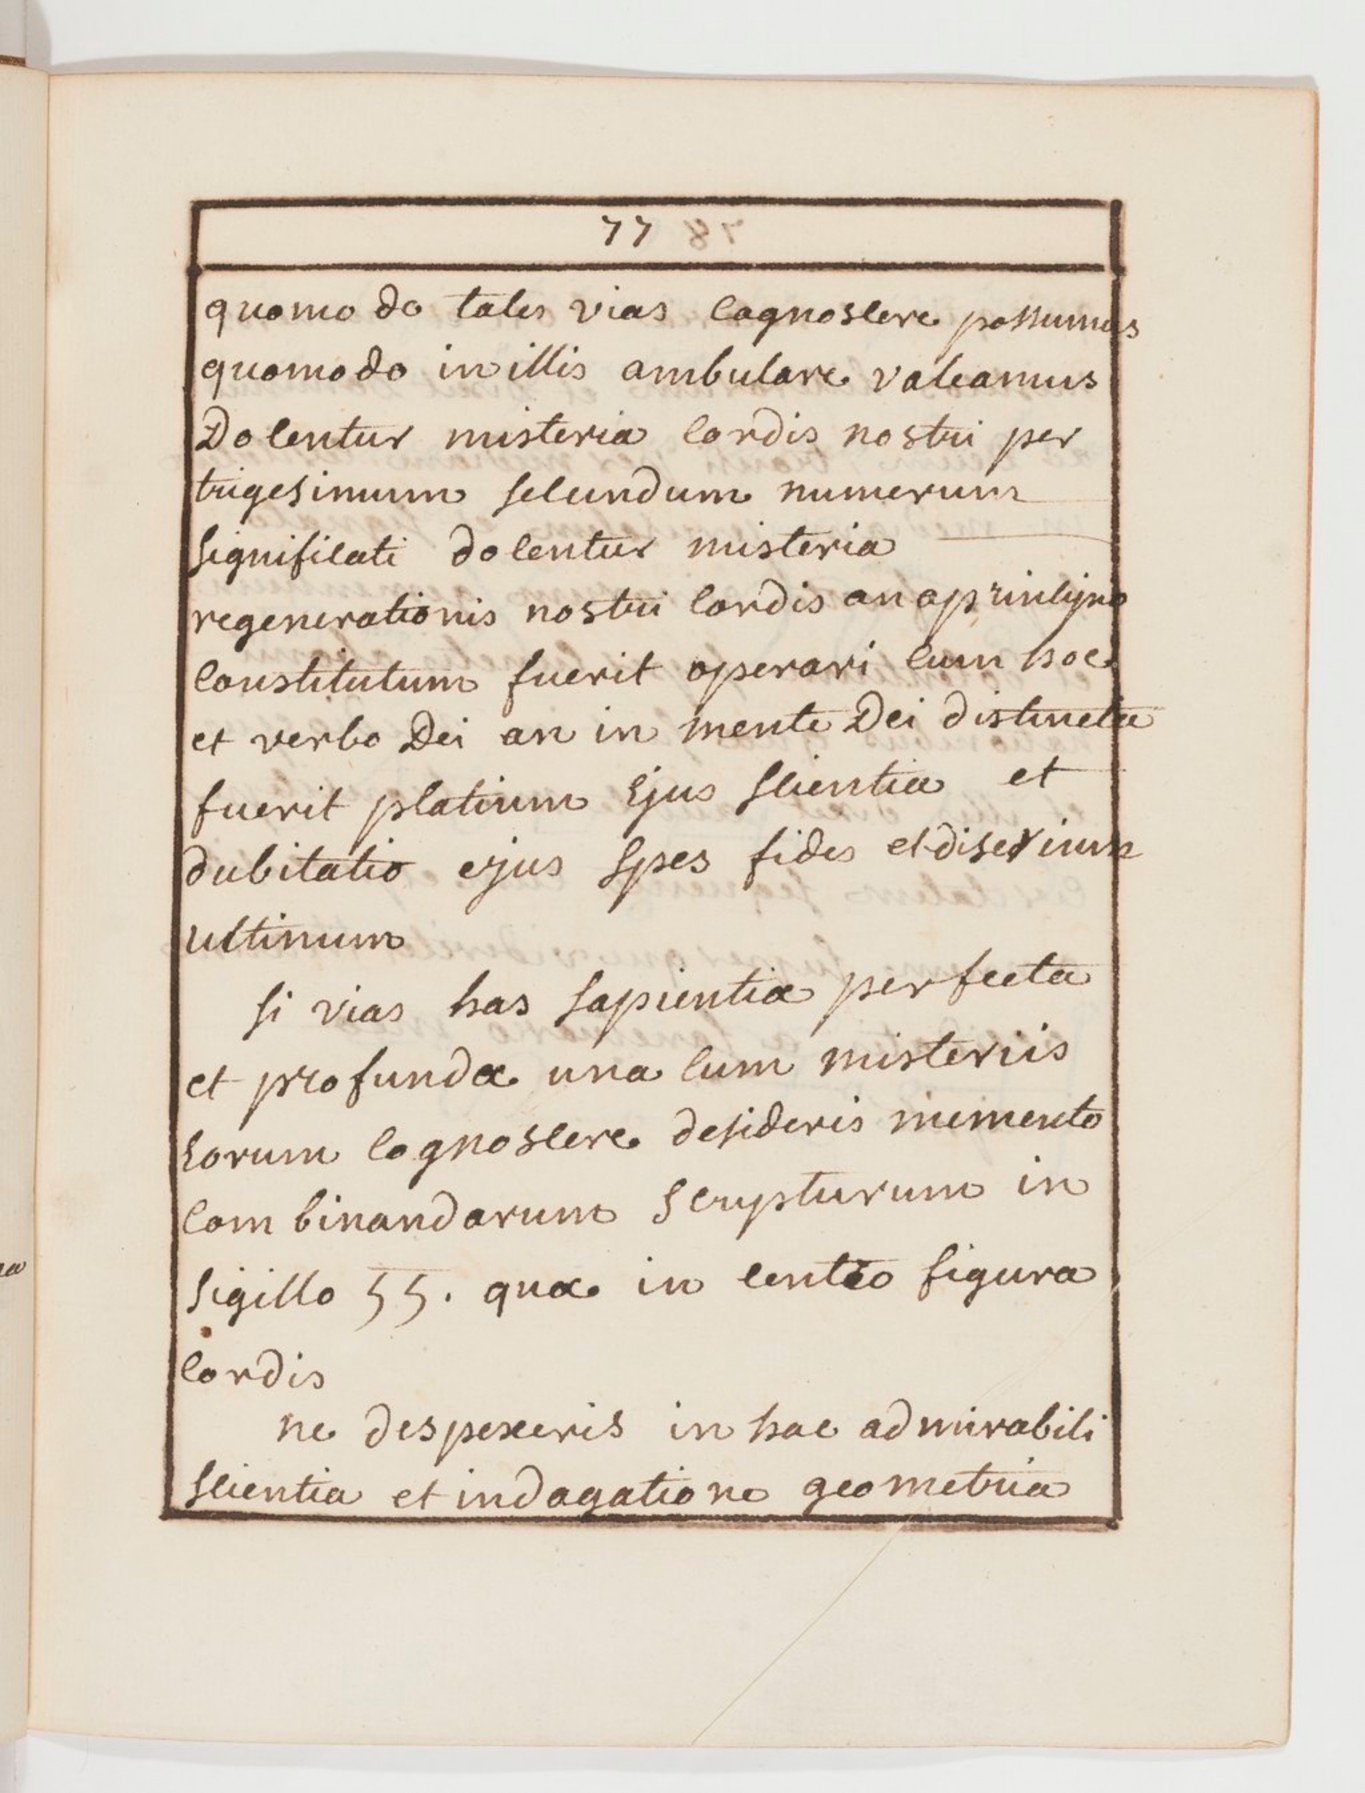 77
quomodo tales vias cognoscere possumus
quomodo in illis ambulare valeamus
Docentur misteria cordis nostri per
trigesimum secundum numerum
significati docentur misteria
regenerationis nostri cordis an aprincipio
constitutum fuerit operari cum hoc
et verbo Dei an in mente Dei distincta
fuerit platium ejus scientia et
dubitatio ejus spes fides et diserium
ultinum
si vias has sapientiæ perfecta
et profundæ una cum misteriis
eorum cognoscere desideris memento
combinandarum scripturum in
sigillo 55. quæ in centro figura
cordis
ne despexeris in hac admirabili
scientia et indagatione geometria